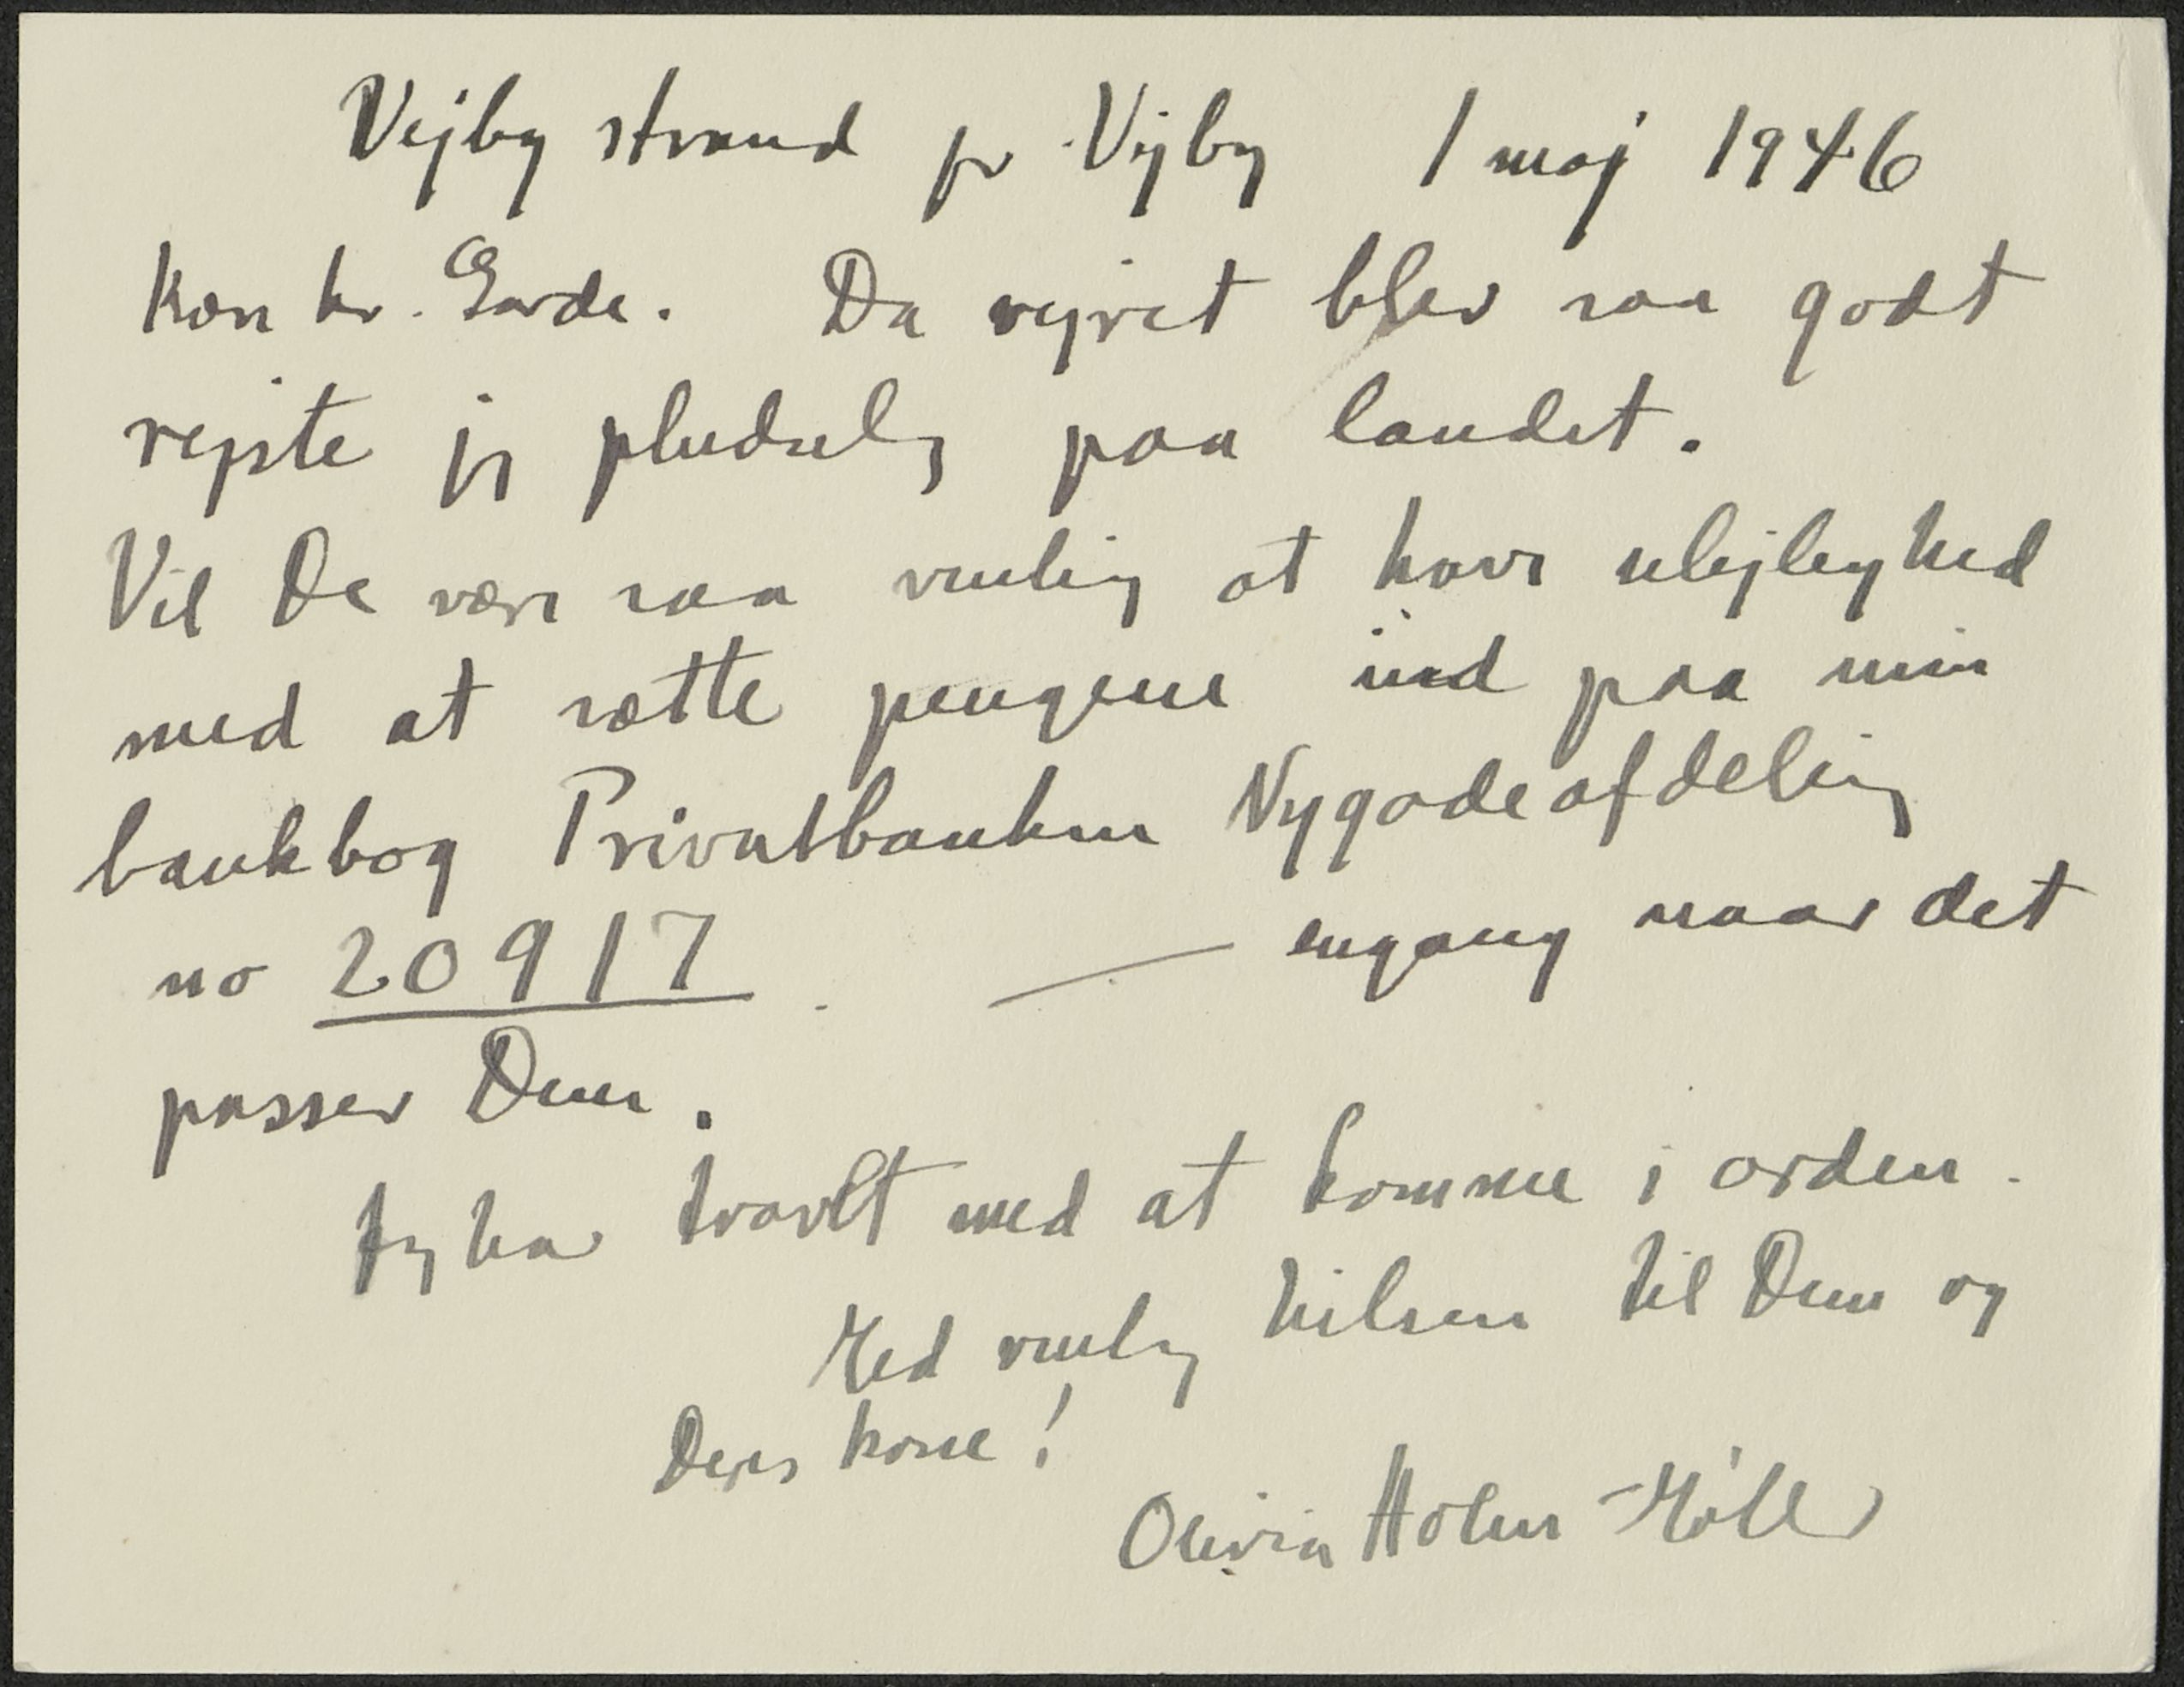 Vejby strand pr Vejby 1 maj 1946
Kære hr. Garde. Da vejret blev saa godt
rejste jeg pludselig paa landet.
Vil De være saa venlig at have ulejlighed
med at sætte pengene ind paa min
bankbog Privatbanken Nygadeafdeling
no 20917. — engang naar det
passer Dem.
Jeg har travlt med at komme i orden.
Med venlig hilsen til Dem og
Deres kone!
Olivia Holm-Møller